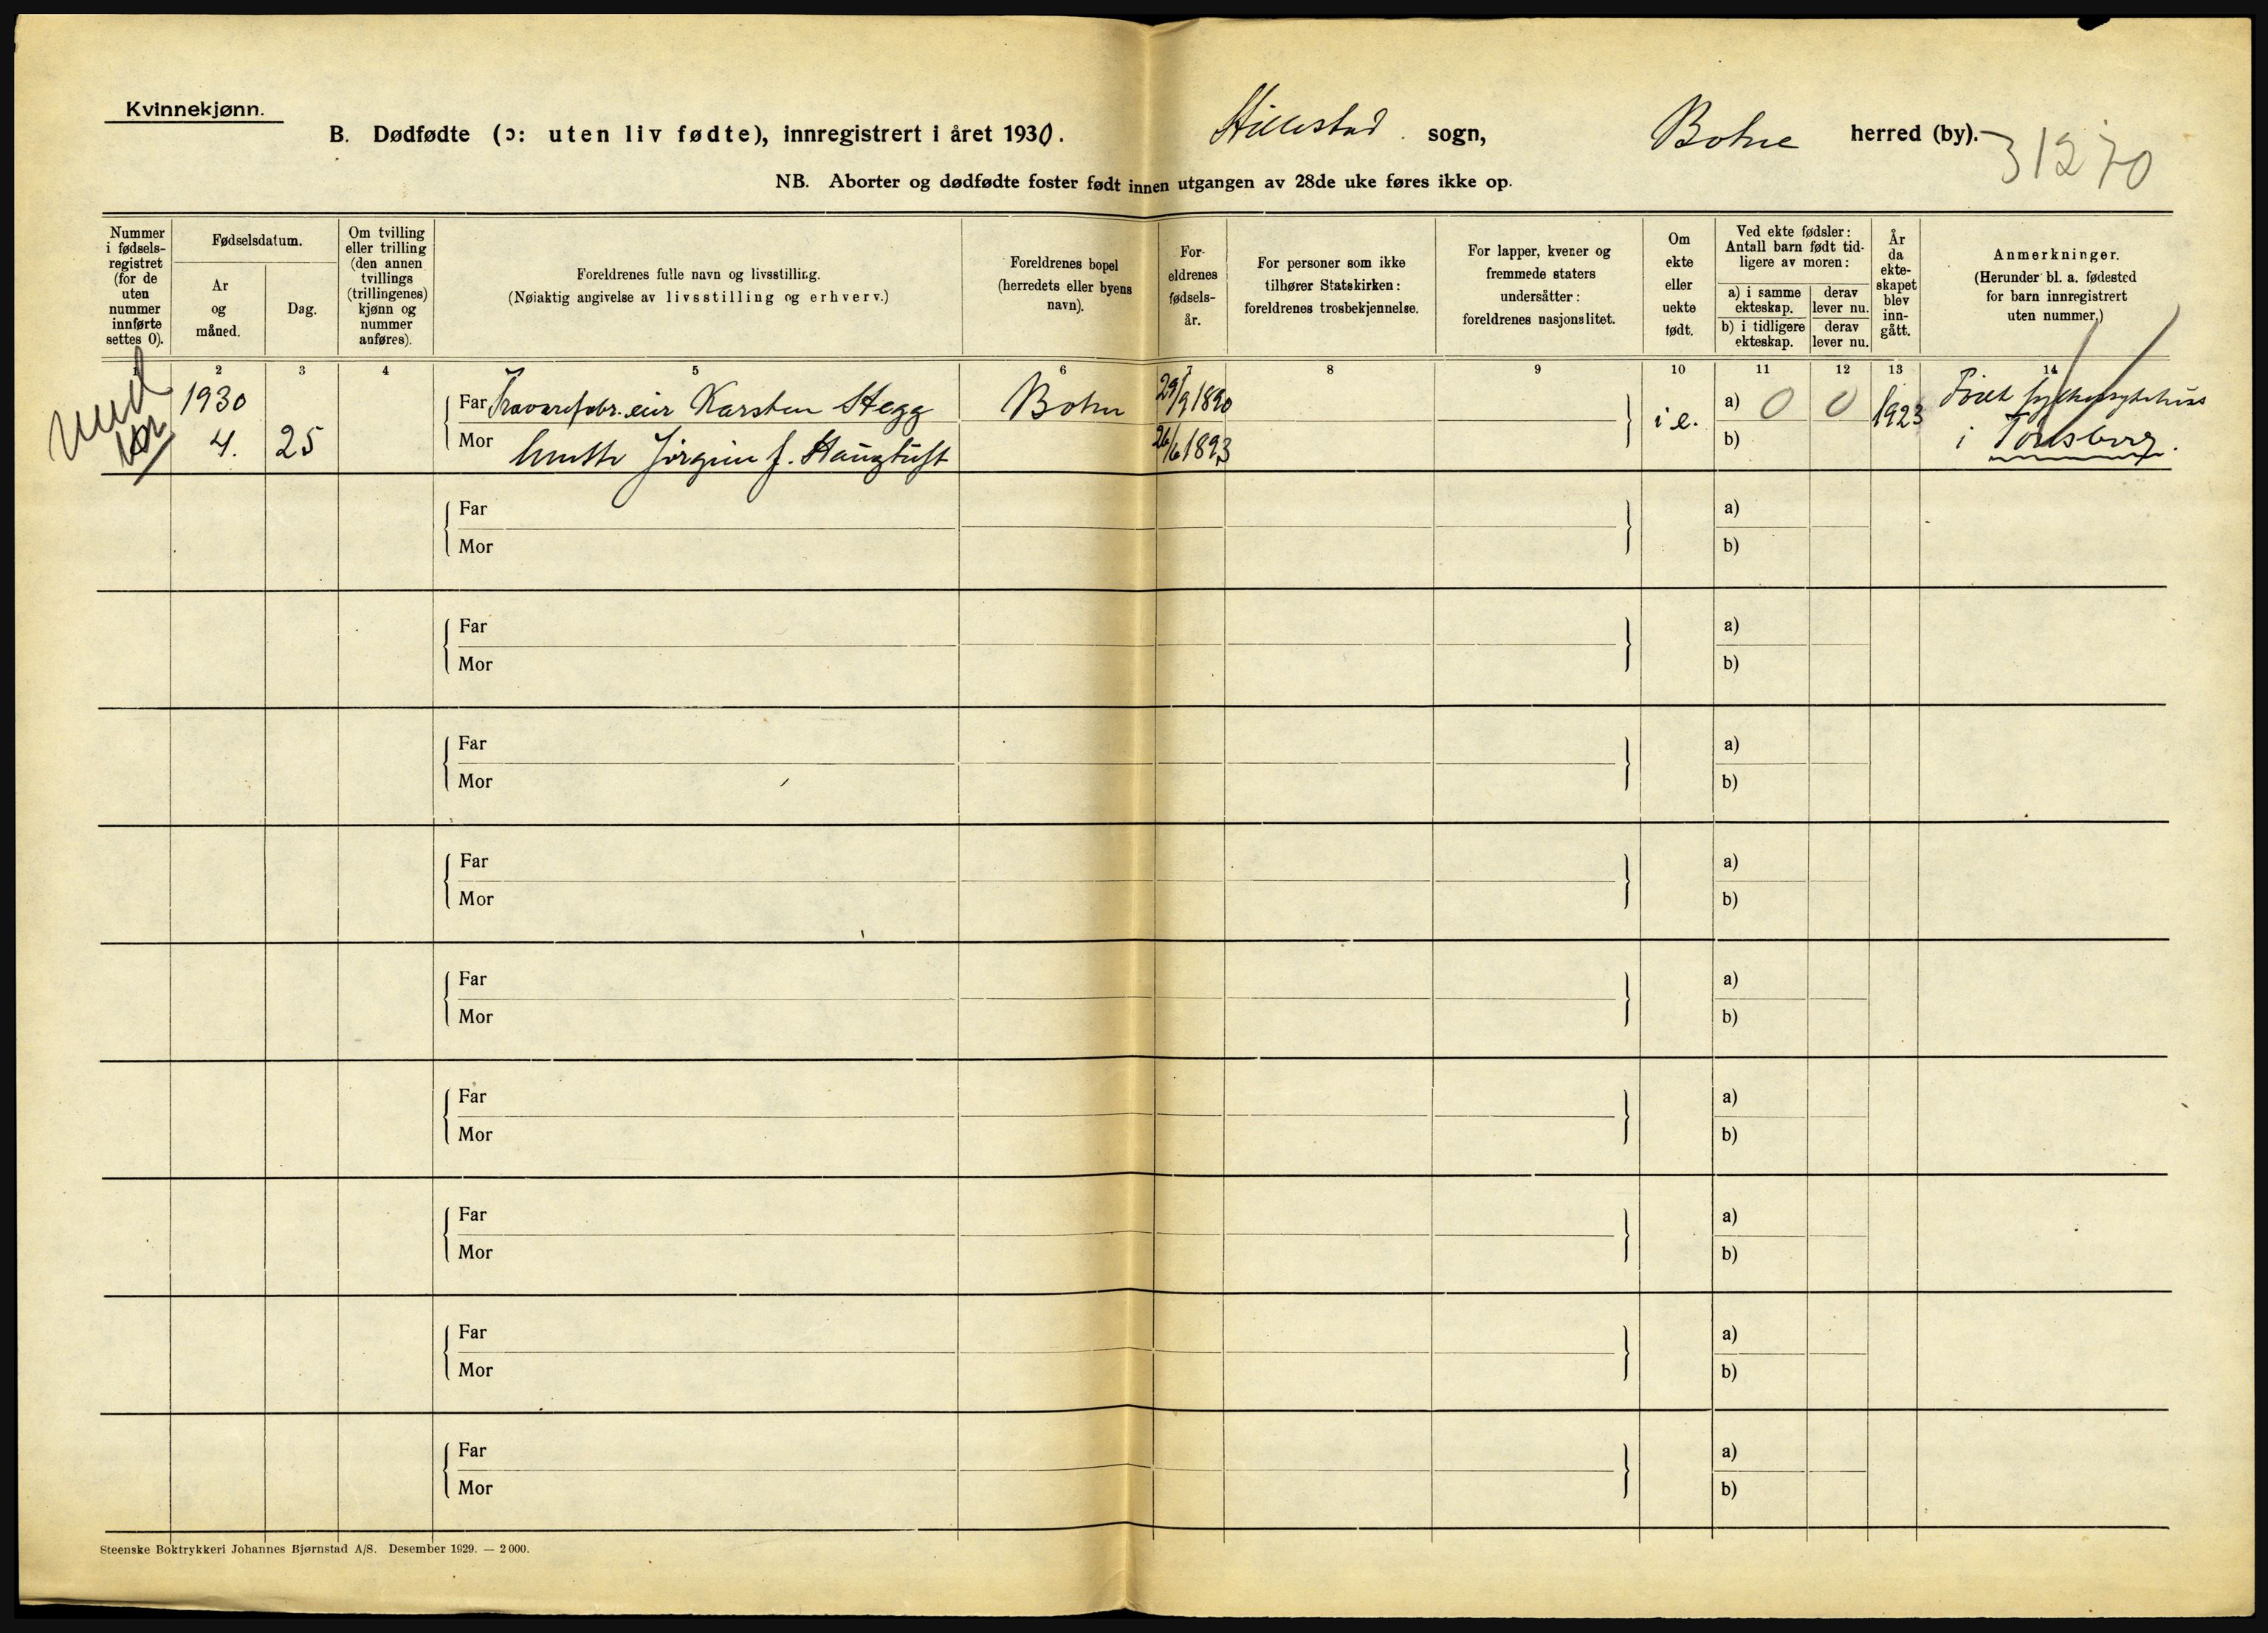 Kvinnekjønn.
B. Dødfødte (ɔ: uten liv fødte), innregistrert i året 1930. Hillestad sogn, Botne herred (by).
31270
NB. Aborter og dødfødte foster født innen utgangen av 28de uke føres ikke op.
Nummer i fødsels-registret (for de uten nummer innførte settes 0).
Fødselsdatum.
År og måned.
Dag.
Om tvilling eller trilling (den annen tvillings (trillingenes) kjønn og nummer anføres).
Foreldrenes fulle navn og livsstilling.
(Nøiaktig angivelse av livsstilling og erhverv.)
Foreldrenes bopel (herredets eller byens navn).
For-eldrenes fødsels-år.
For personer som ikke tilhører Statskirken: foreldrenes trosbekjennelse.
For lapper, kvener og fremmede staters undersåtter: foreldrenes nasjonalitet.
Om ekte eller uekte født.
Ved ekte fødsler: Antall barn født tid-ligere av moren:
a) i samme ekteskap.
derav lever nu.
b) i tidligere ekteskap.
derav lever nu.
År da ekte-skapet blev inn-gått.
Anmerkninger.
(Herunder bl. a. fødested for barn innregistrert uten nummer.)
1 2 3 4 5 6 7 8 9 10 11 12 13 14
1930 Far Trævarefabr.eier Karsten Hegg Botne 29/9 1890 i e. a) 0 0 1923 Født fylkessykehus
4. 25 Mor Jørgine f. Haugtuft 26/6 1893 b) i Tønsberg.
Far a)
Mor b)
Far a)
Mor b)
Far a)
Mor b)
Far a)
Mor b)
Far a)
Mor b)
Far a)
Mor b)
Far a)
Mor b)
Far a)
Mor b)
Far a)
Mor b)
Steenske Boktrykkeri Johannes Bjørnstad A/S. Desember 1929. — 2 000.